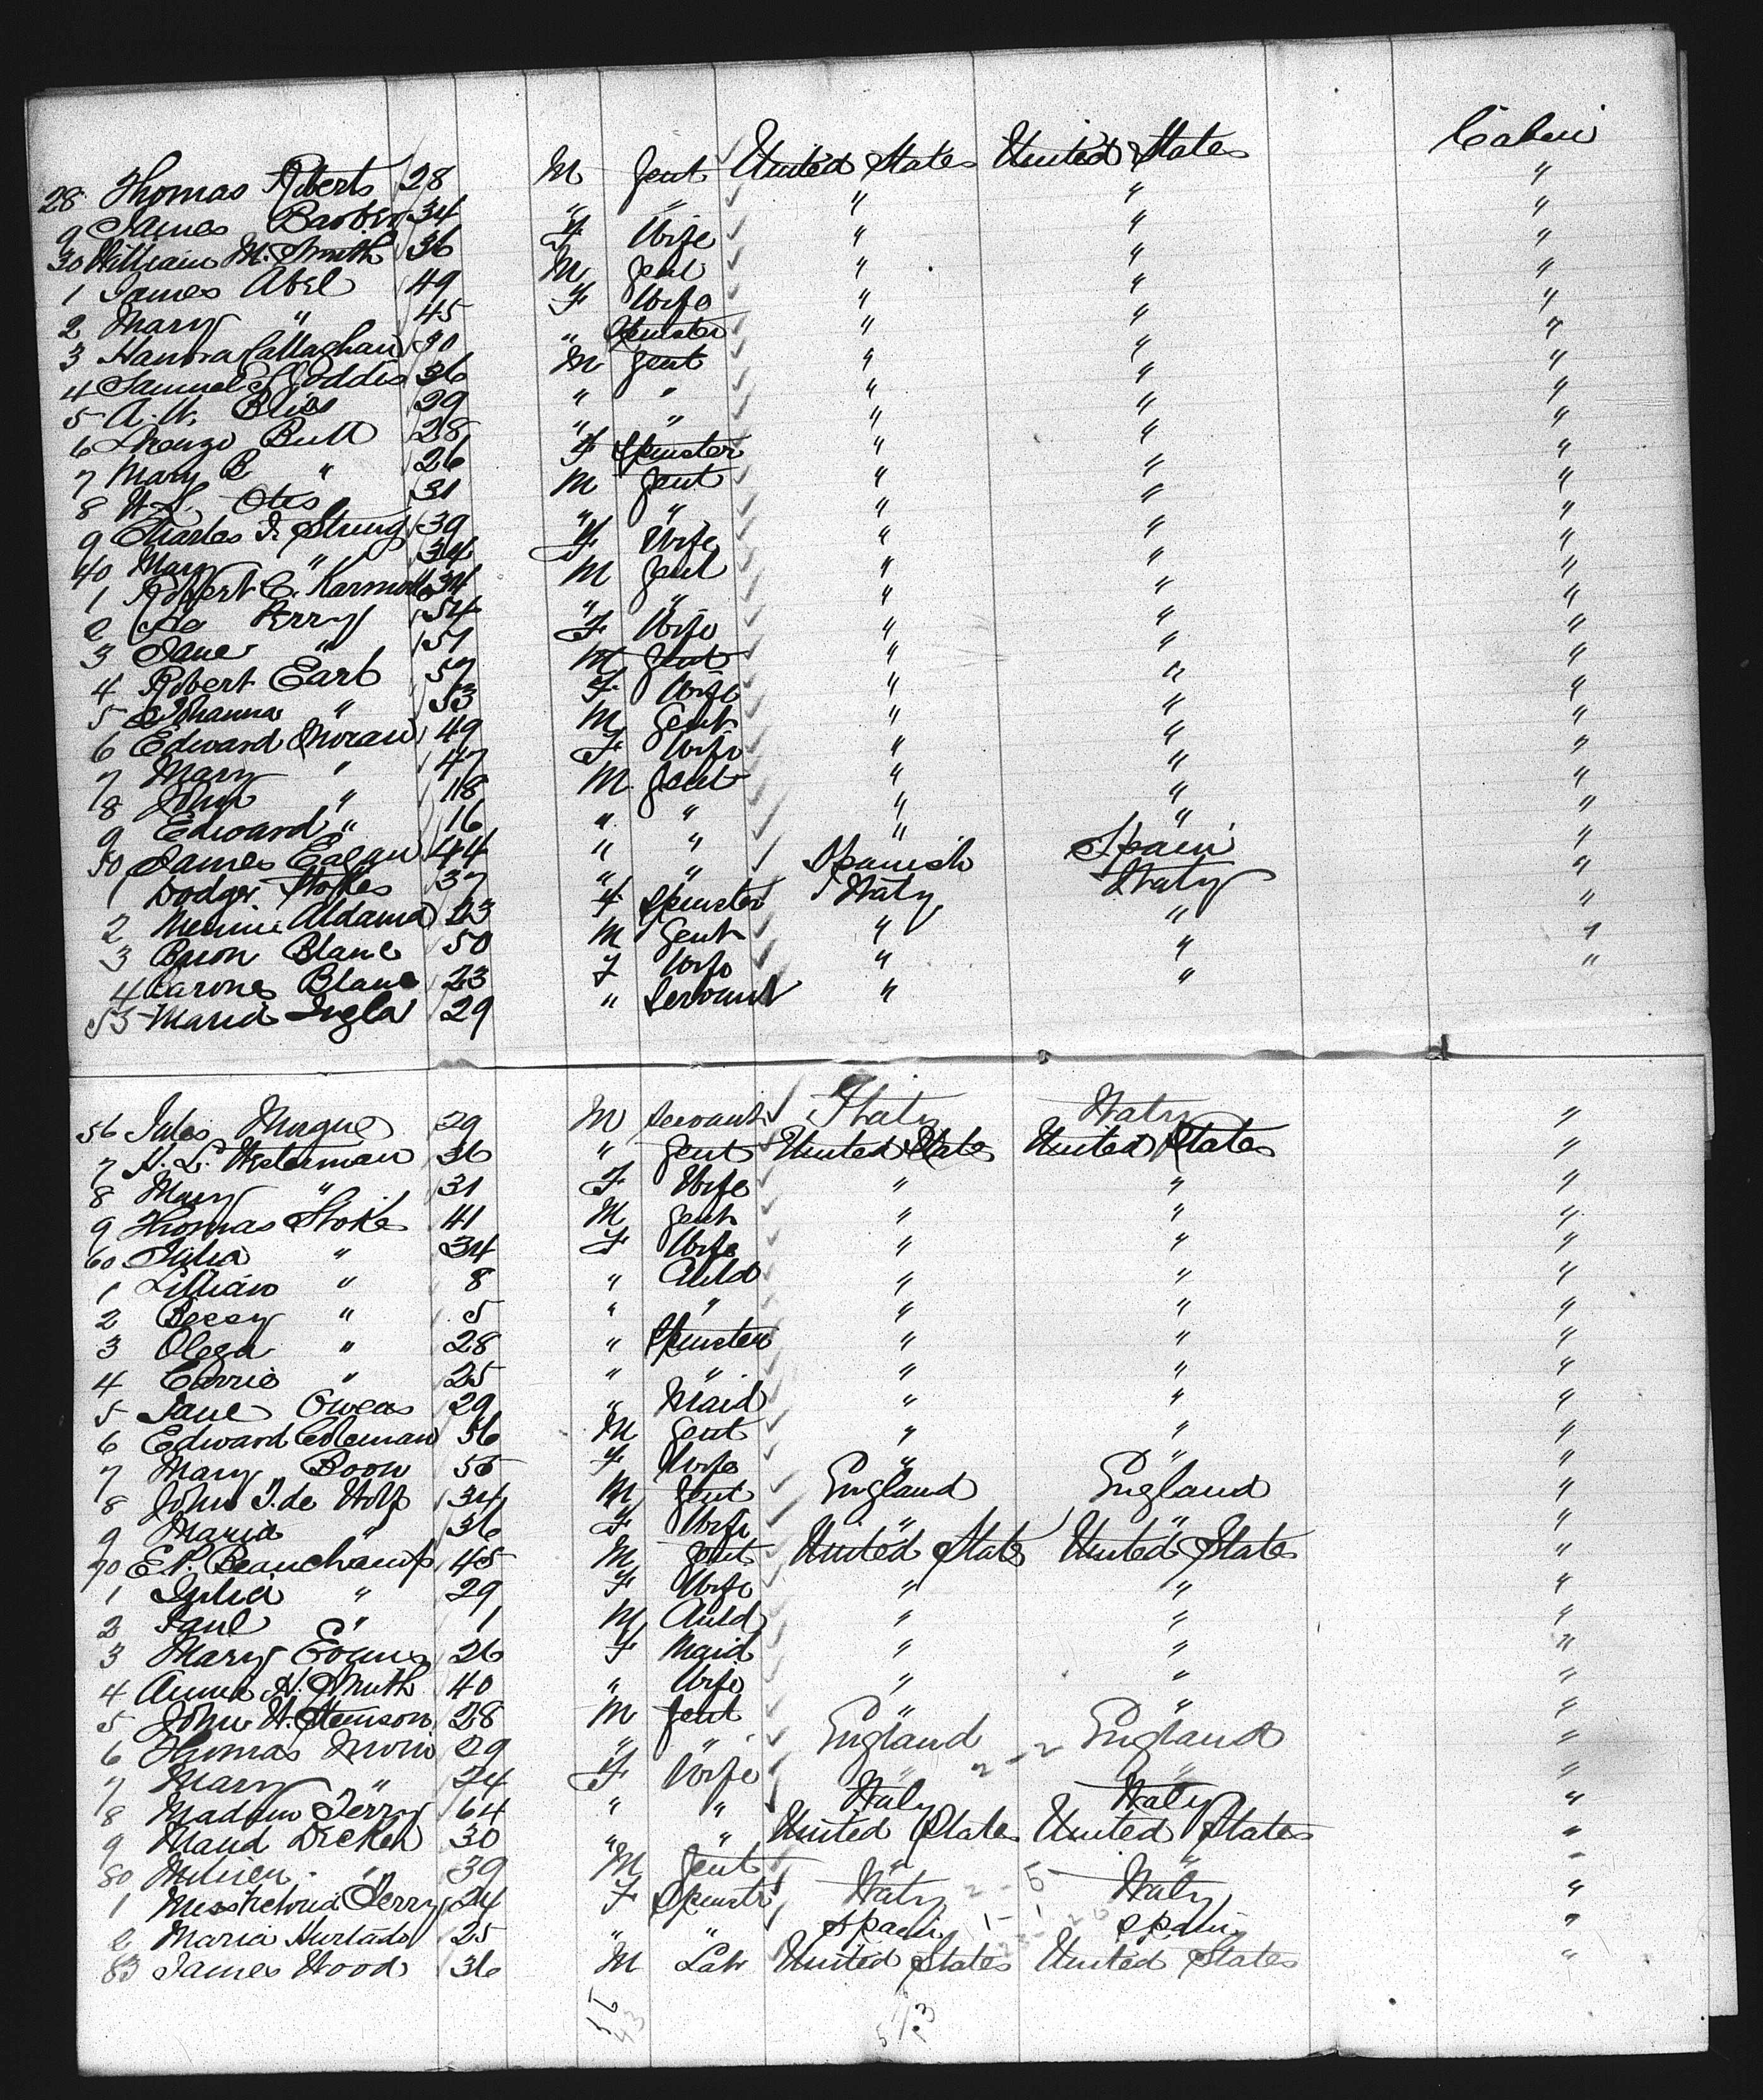 28 Thomas Roberts 28 M Gent United States United States Cabin
9 James Barber 34 " " " " "
30 William M. Smith 36 F Wife " " "
1 James Abel 49 M Gent " " "
2 Mary " 45 F Wife " " "
3 Hanora Callaghan 30 " Spinster " " "
4 Samuel S. Goddis 36 M Gent " " "
5 A. W. Bliss 29 " " " " "
6 Lorenzo Butt 28 " " " " "
7 Mary B " 26 F Spinster " " "
8 W. S. Otis 31 M Gent " " "
9 Charles F. Strung 39 " " " " "
40 Mary " 34 F Wife " " "
1 Robert C. 34 M Gent " " "
2 Perry 54 " " " " "
3 Jane " 51 F Wife " " "
4 Robert Earl 57 M Gent " " "
5 Johanna " 53 F Wife " " "
6 Edward Moran 49 M Gent " " "
7 Mary " 47 F Wife " " "
8 John " 18 M Gent " " "
9 Edward " 16 " " " " "
50 James Eagan 44 " " " " "
1 Dodge Stokes 37 " " Spanish Spain "
2 Aldama 23 F Spinster Italy Italy "
3 Blanc 50 M Gent " " "
4 Blanc 23 F Wife " " "
55 Maria Ingla 29 " Servant " " "
56 Jules Mugue 29 M Servant Italy Italy "
7 H. L. Westerman 36 " Gent United States United States "
8 Mary " 31 F Wife " " "
9 Thomas Stokes 41 M Gent " " "
60 Julia " 34 F Wife " " "
1 Lillian " 8 " Child " " "
2 Bessy " 5 " " " " "
3 Olega " 28 " Spinster " " "
4 Carrie " 25 " " " " "
5 Jane Owens 29 " Maid " " "
6 Edward Coleman 56 M Gent " " "
7 Mary Boon 55 F Wife " " "
8 John J. de Wolf 34 M Gent England England "
9 Maria " 36 F Wife " " "
70 E. P. Beauchamp 45 M Gent United States United States "
1 Julia " 29 F Wife " " "
2 Paul " 1 M Child " " "
3 Mary Evans 26 F Maid " " "
4 Anna H. Smith 40 " Wife " " "
5 John W. Stenson 28 M Gent " " "
6 Thomas 29 " " England England "
7 Mary " 24 F Wife " 2 - 2 " "
8 Madam Terry 64 " " Italy Italy "
9 Maud Dicken 30 " " United States United States "
80 " 39 M Gent " " "
1 Miss Terry 24 F Spinster Italy 2 - 5 Italy "
2 Maria Hurtado 25 " " Spain 1 - 1 Spain "
83 James Wood 36 M Lab United States United States "